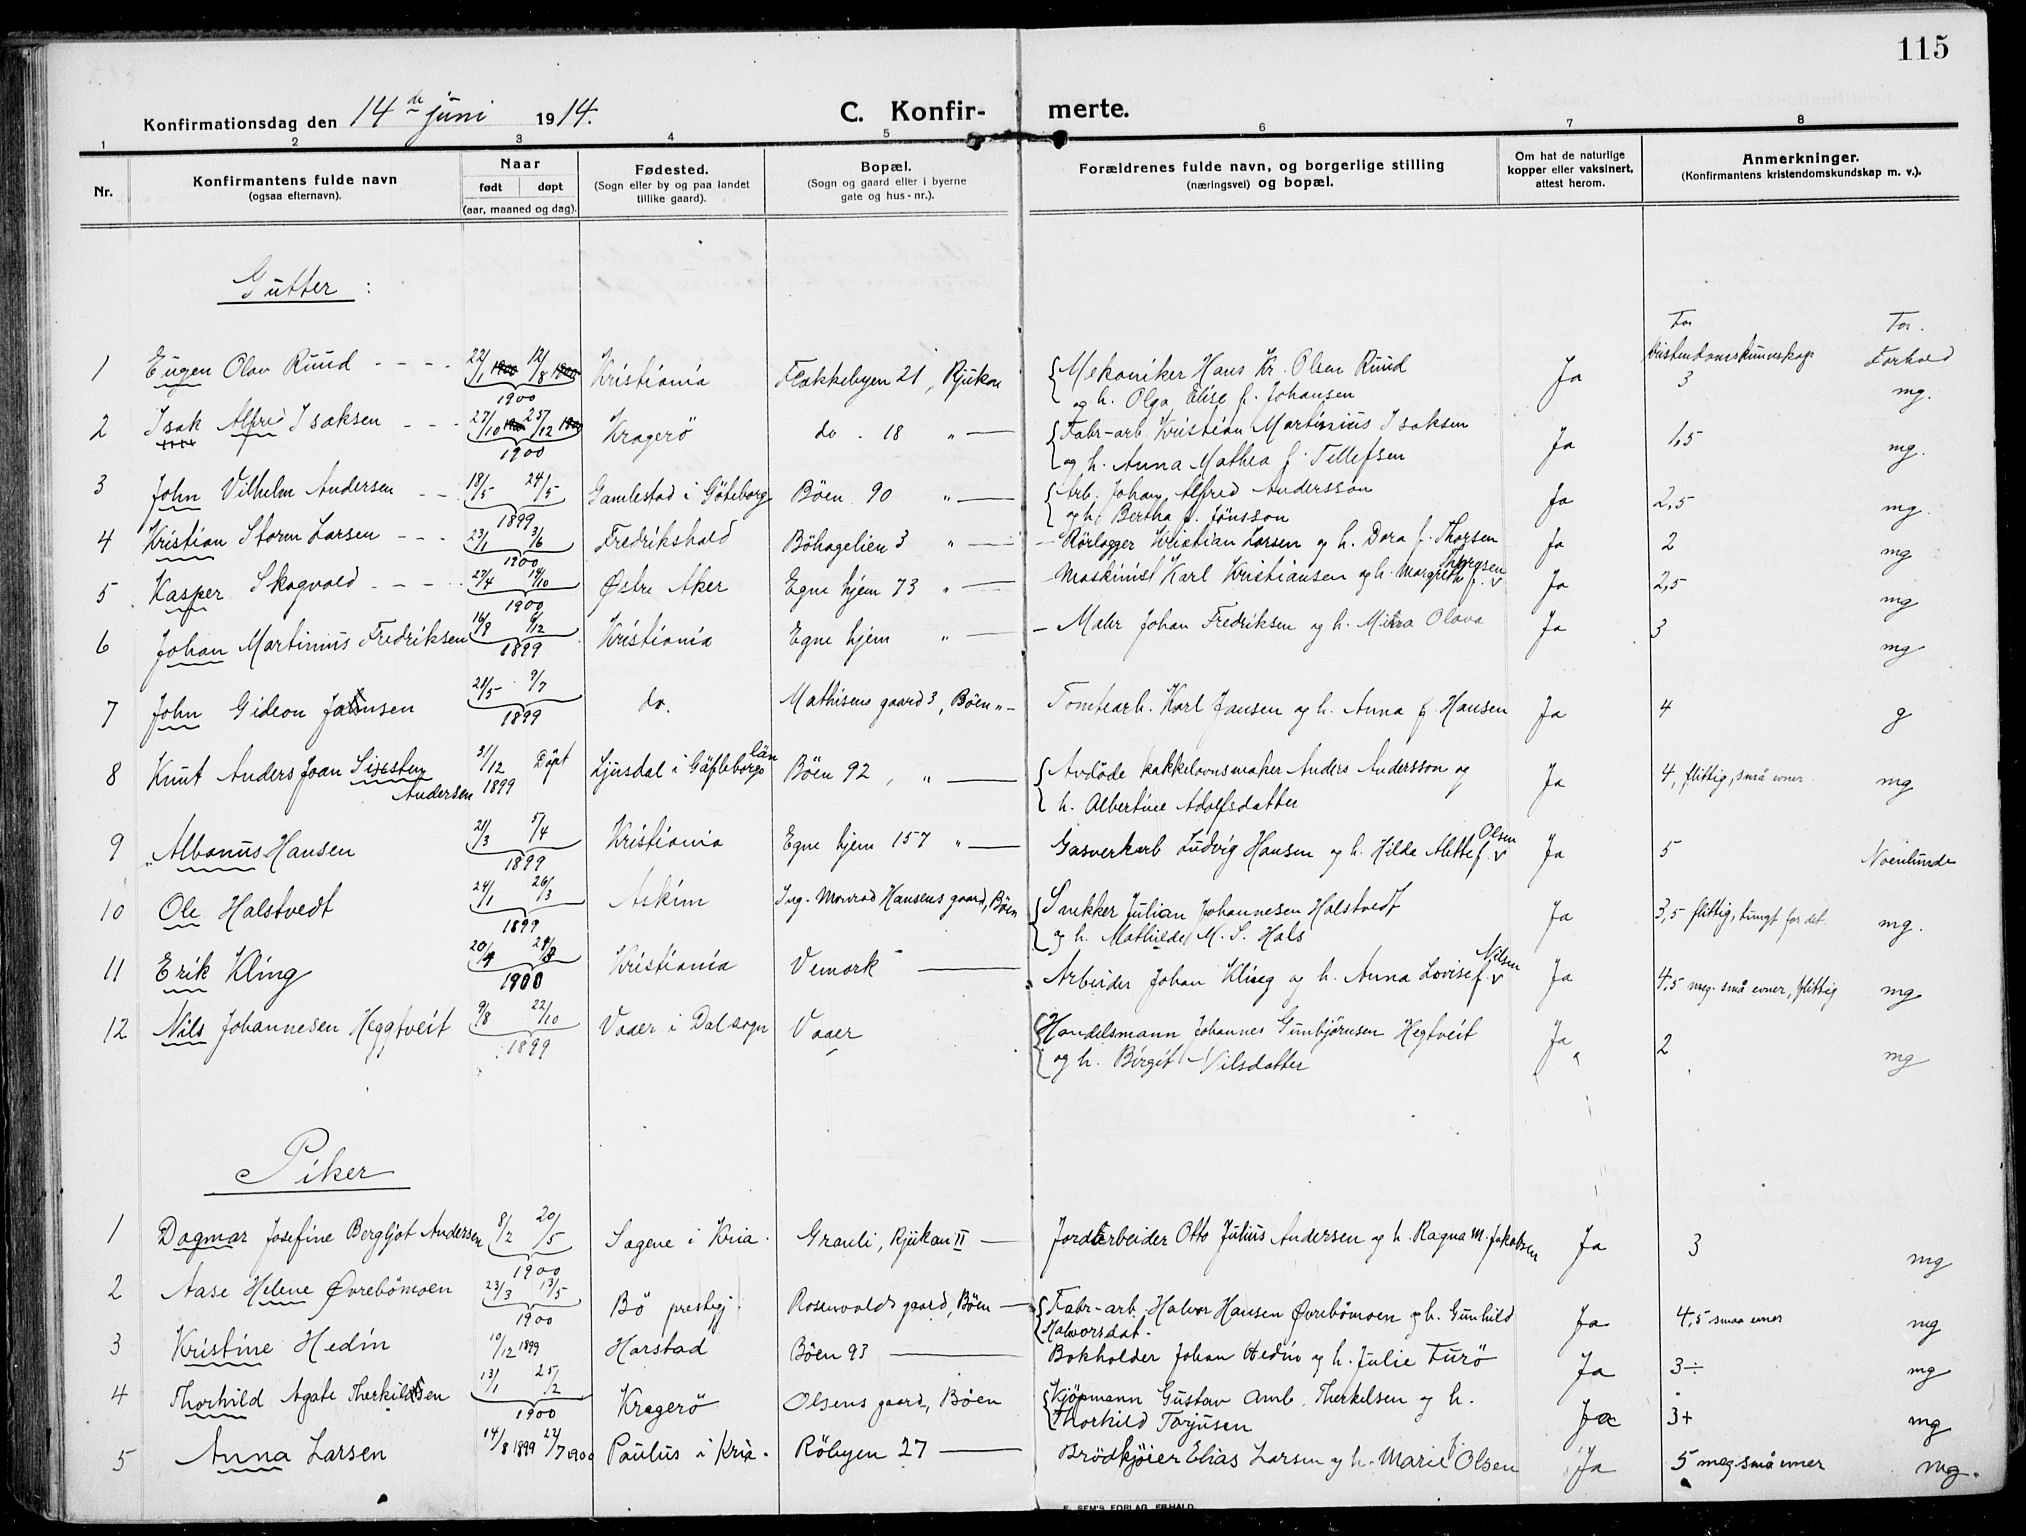 115
Konfirmationsdag den 14de juni 1914. C. Konfir- merte.
1 2 3 4 5 6 7 8
Nr. Konfirmantens fulde navn (ogsaa efternavn). Naar født døpt (aar, maaned og dag). Fødested. (Sogn eller by og paa landet tillike gaard). Bopæl. (Sogn og gaard eller i byerne gate og hus-nr.). Forældrenes fulde navn, og borgerlige stilling (næringsvei) og bopæl. Om hat de naturlige kopper eller vaksinert, attest herom. Anmerkninger. (Konfirmantens kristendomskundskap m. v.).
Gutter :
For kristendomskunnskap For. Forhold
1 Eugen Olav Ruud 22/1 12/8 1900 Kristiania Flakkebyen 21, Rjukan Mekaniker Hans Kr. Olsen Ruud Ja 3 mg.
og h. Olga Elise f. Johansen
2 Isak Alfred Isaksen 27/10 25/12 1900 Kragerö do. 18 " Fabr-arb. Kristian Martinius Isaksen Ja 1,5 mg.
og h. Anna Mathea f. Tellefsen
3 John Vilhelm Andersen 18/5 24/5 1899 Gamlestad i Göteborg Böen 90 " Arb. Johan Alfred Andersson Ja 2,5 mg
og h. Bertha f. Jönsson
4 Kristian Storm Larsen 23/1 3/6 1900 Fredrikshald Böhagelien 3 " Rörlegger Kristian Larsen og h. Dora f. Thorsen Ja 2 mg
5 Kasper Skogvold 27/4 14/10 1900 Østre Aker Egne hjem 73 " Maskinist Karl Kristiansen og h. Margrethe f. Thorysen Ja 2,5 mg
6 Johan Martinius Fredriksen 16/9 9/12 1899 Kristiania Egne hjem " Malir Johan Fredriksen og h. Minna Olava Ja 3 mg
7 John Gideon Jansen 21/5 9/7 1899 do. Mathisens gaard 3, Böen " Tomtearb. Karl Jansen og h. Anna f. Hansen Ja 4 g
8 Knut Anders Joan Sixsten Andersen 31/12 1899 Döpt Ljusdal i Gäfleborgs län Böen 92, " Avdöde kakkelovnsmaker Anders Andersson og Ja 4, flittig, små evner mg
h. Albertine Adolfsdatter
9 Albanus Hansen 21/3 5/4 1899 Kristiania Egne hjem 157 " Gasverkarb Ludvig Hansen og h. Hilda Alette f. Olsen Ja 5 Noenlunde
10 Ole Halstvedt 24/1 26/3 1899 Askim Ing. Monrad Hansens gaard, Böen Snekker Julian Johannesen Halstvedt Ja 3,5 flittig, tungt for det mg.
og h. Mathilde M. S. Hals
11 Erik Kling 20/4 1900 Kristiania Vemork Arbeider Johan Kling og h. Anna Lovise f. Nilsen Ja 4,5 meg. små evner, flittig mg
12 Nils Johannesen Heggtveit 9/8 22/10 1899 Vaaer i Dal sogn Vaaer Handelsmann Johannes Gunbjörnsen Hegtveit Ja 2 mg
og h. Birgit Nilsdatter
Piker
1 Dagmar Josefine Bergljot Andersen 8/2 20/5 1900 Sagene i Kria. Granli, Rjukan II Jordarbeider Otto Julius Andersen og h. Ragna M. Jakobsen Ja 3 mg
2 Aase Helene Øvrebömoen 23/3 13/5 1900 Bö prestegj. Rosenvolds gaard, Böen Fabr-arb. Halvor Hansen Øvrebömoen og h. Gunhild Ja 4,5 smaa evner mg
Halvorsdat.
3 Kristine Hedin 10/12 1899 Harstad Böen 93 Bokholder Johan Hedin og h. Julie Furö Ja 3÷ mg
4 Thorhild Agate Therkildsen 13/1 25/2 1900 Kragerö Olsens gaard, Böen Kjöpmann Gustav Amb. Therkelsen og h. Ja 3+ mg
Thorhild Torjusen
5 Anna Larsen 14/8 1899 22/7 1900 Paulus i Kria. Röbyen 27 Brödkjöier Elias Larsen og h. Marie f. Olsen Ja 5 meg. små evner mg.
E. SEM'S FORLAG, FR.HALD